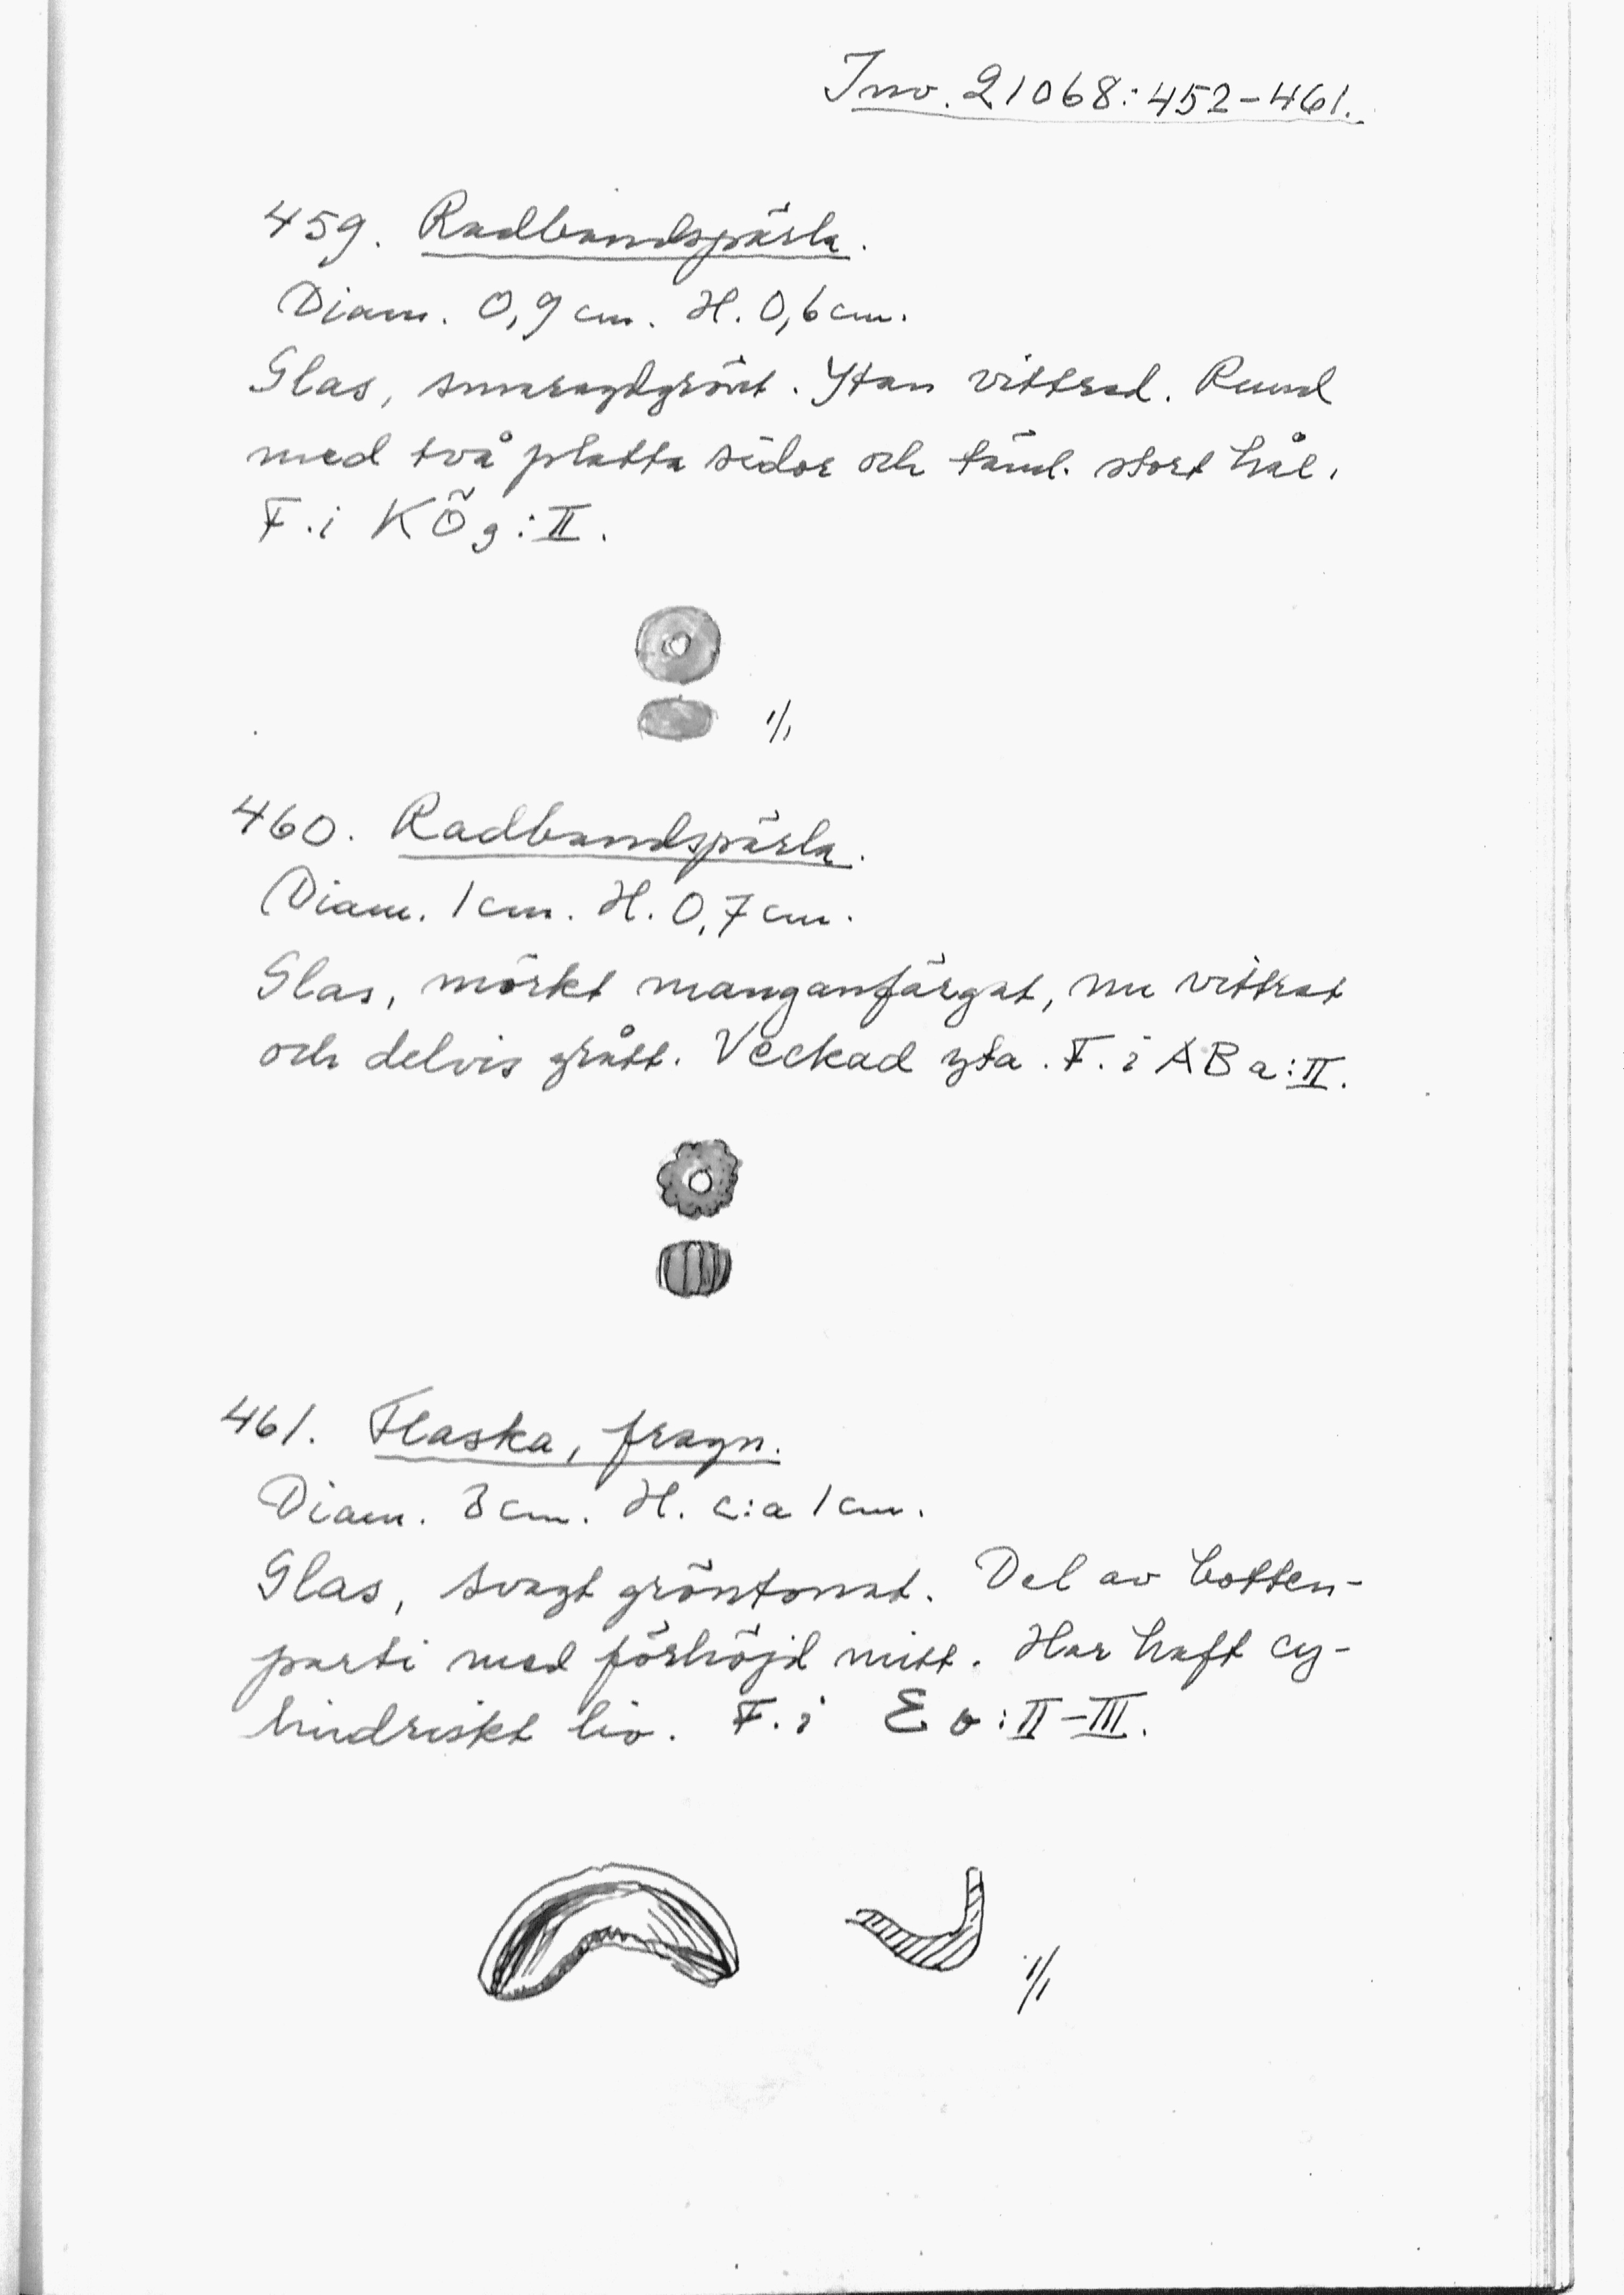 Inv. 21068:452-461.
459. Radbandspärla.
Diam. 0,9 cm. H. 0,6 cm.
Glas, smaragdgrönt. Ytan vittrad. Rund
med två platta sidor och täml. stort hål.
F. i KÖg:II.
1/1
460. Radbandspärla.
Diam. 1 cm. H. 0,7 cm.
Glas, mörkt manganfärgat, nu vittrat
och delvis grått. Veckad yta. F. i ABa:II.
461. Flaska, fragm.
Diam. 3 cm. H. c:a 1 cm.
Glas, svagt gröntonat. Del av botten-
parti med förhöjd mitt. Har haft cy-
lindriskt liv. F. i Eo:II-III.
1/1